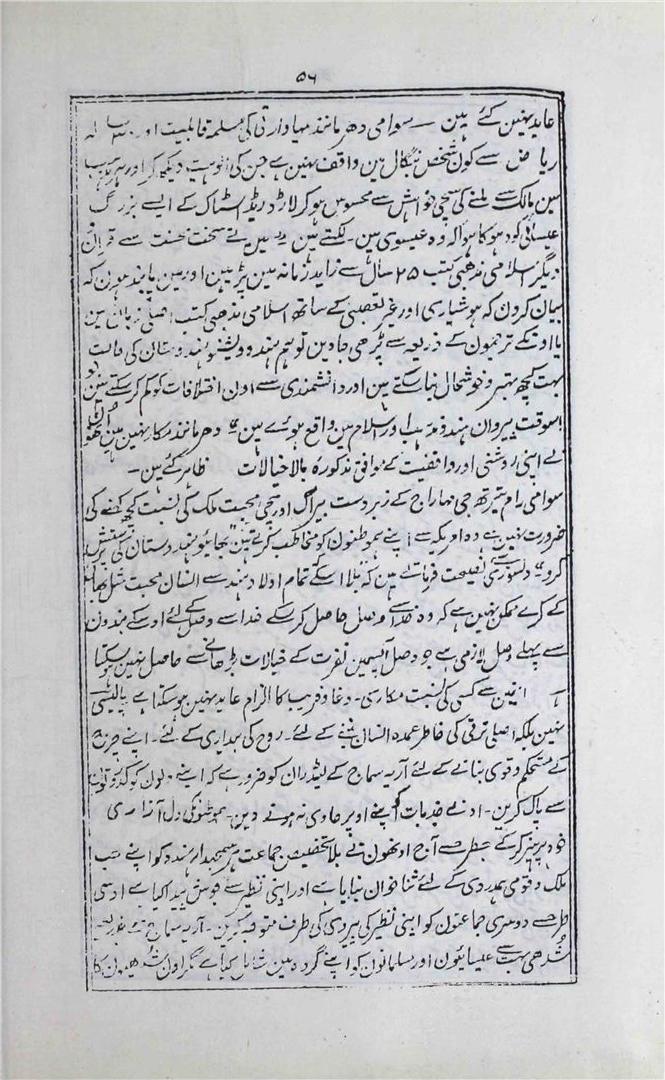 ۵۶
عاید نہین کئے ہین ۔ سوامی دھرمانند مہاوارتی کی مسلمہ قابلیت اور
ریاض سے کون شخص بنگال مین واقف نہین ہے جن کی دیکھکر اور
مین مالک سے ملنے کی سچی خواہش سے محسوس ہوکر لارڈ ریڈ اسٹاک کے ایسے بزرگ
عیسائی کو دہوکا ہوا کہ وہ عیسوی ہین ۔ لکھتے ہین مین نے سخت محنت سے قرآن
دیگر اسلامی مذہبی کتب ۲۵ سال سے زاید زمانہ مین پڑہین اور مین پابند ہون کہ
بیان کرون کہ ہوشیاری اور غیر تعصبی کے ساتھ اسلامی مذہبی کتب اصلی زبان مین
یا اونکے ترجمون کے ذریعہ سے پڑھی جاوین تو ہم ہندو ویشنو ہندوستان کی حالت
بہت کچھ بہتر و خوشحال بنا سکتے ہین اور دانشمندی سے اون اختلافات کو کم کر سکتے ہین
اسوقت پیروان ہندو مذہب اور اسلام مین واقع ہوئے ہین" دھرمانند مکار نہین ہین
نے اپنی روشنی اور واقفیت کے موافق مذکورہ بالا خیالات ظاہر کئے ہین ۔
سوامی رام تیرتھ جی مہاراج کے زبردست بیراگ اور سچی محبت ملک کی نسبت کچھ کہنے کی
ضرورت نہین ہے وہ امریکہ سے اپنے ہموطنون کو مخاطب کرتے ہین "بھائیو ہندوستان کی پرستش
کرو" دلسوزی سے نصیحت فرماتے ہین کہ "بلا اسکے تمام اولاد ہند سے انسان محبت مثل بھائی
کے کرے ممکن نہین ہے کہ وہ خدا سے وصل حاصل کر سکے خدا سے وصل کے لئے اوسکے بندون
سے پہلے وصل لازمی ہے جو وصل آپسمین نفرت کے خیالات بڑھانے سے حاصل نہین ہو سکتا
ہے انمین سے کسی کی نسبت مکاری ۔ دغا و فریب کا الزام عاید نہین ہو سکتا ہے پالیسی
نہین بلکہ اصلی ترقی کی خاطر عمدہ انسان بننے کے لئے ۔ روح کی بیداری کے لئے ۔ اپنے
کے مستحکم و قوی بنانے کے لئے آریہ سماج کے لیڈران کو ضرور ہے کہ اپنے دلون کو
سے پاک کرین ۔ ادنے جذبات کو اپنے اوپر حاوی نہ ہونے دین ۔ ہموطنونکی دل آزاری
خود پرہیز کر کے جسطرح آج اونھون نے بلا تخصیص جماعت ہر سمجھدار بندہ کو اپنے حب
ملک و قومی ہمدردی کے لئے ثنا خوان بنایا ہے اور اپنی نظیر سے جوش پیدا کیا ہے اوسی
طرح دوسری جماعتون کو اپنی نظیر کی پیروی کی طرف متوجہ کرین ۔ آریہ سماج نے
شدھی بہت سے عیسائیون اور مسلمانون کو اپنے گروہ مین شامل کیا ہے مگر اون کا